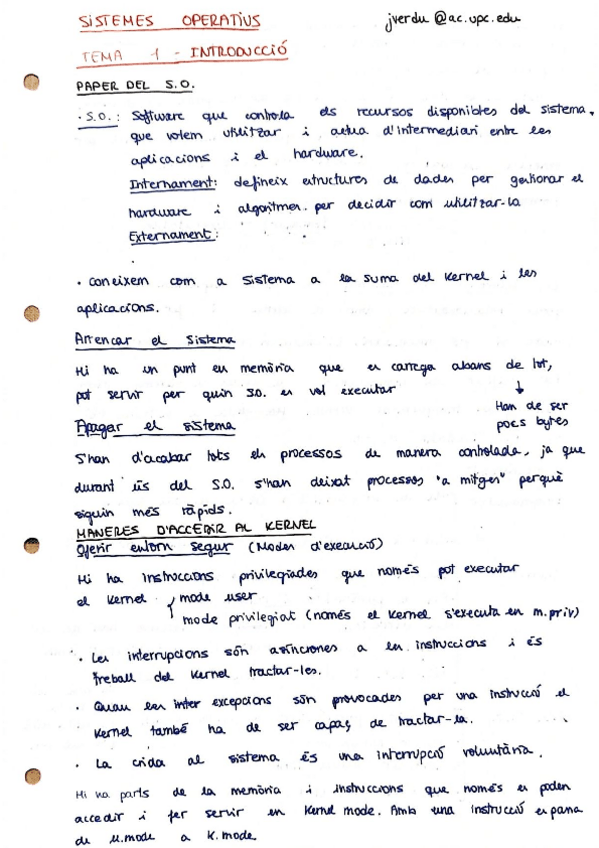 SISTEMES OPERATIUS
jverdu @ac.upc.edu
TEMA 1 - INTRODUCCIÓ
PAPER DEL S.O.
· S.O. : Software que controla els recursos disponibles del sistema,
que volem utilitzar i actua d'intermediari entre les
aplicacions i el hardware.
Internament: defineix estructures de dades per gestionar el
hardware i algoritmes per decidir com utilitzar-la
Externament:
· Coneixem com a Sistema a la suma del Kernel i les
aplicacions.
Arrencar el Sistema
Hi ha un punt en memòria que es carrega abans de tot,
pot servir per quin S.O. es vol executar
↓
Han de ser
pocs bytes
Apagar el sistema
S'han d'acabar tots els processos de manera controlada, ja que
durant ús del S.O. s'han deixat processos "a mitges" perquè
siguin més ràpids.
MANERES D'ACCEDIR AL KERNEL
Oferir entorn segur (Modes d'execució)
Hi ha Instruccions privilegiades que només pot executar
el Kernel mode user
mode privilegiat (només el Kernel s'executa en m.priv)
· Les interrupcions són asíncrones a les instruccions i és
treball del Kernel tractar-les.
· Quan les inter excepcions són provocades per una instrucció el
Kernel també ha de ser capaç de tractar-la.
· La crida al sistema és una interrupció voluntària.
Hi ha parts de la memòria i instruccions que només es poden
accedir i fer servir en Kernel mode. Amb una instrucció es passa
de u.mode a K.mode